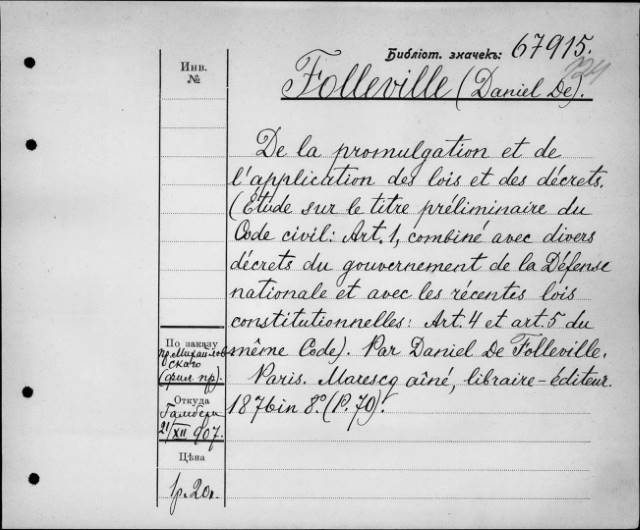 Библіот. значекъ: 67915.
Инв.
№
Folleville (Daniel De).
De la promulgation et de
l'application des lois et des décrets.
(Etude sur le titre préliminaire du
Code civil: Art. 1, combiné avec divers
décrets du gouvernement de la Défense
nationale et avec les récentes lois
constitutionnelles: Art. 4 et art. 5 du
même Code). Par Daniel De Folleville.
Paris. Marescq aîné, libraire-éditeur.
1876 in 8º. (P. 70).
По заказу
пр. Михайлов
скаго
(фил пр).
Откуда
21/XII 907.
Цѣна
1р. 20к.